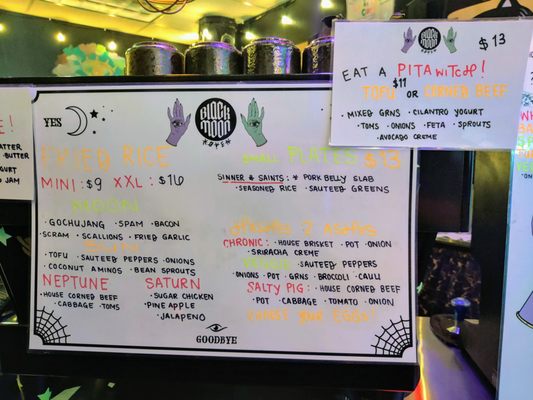 BLOCK MOON
$13
EAT A PITAWITCH!
$11
TOFU OR CORNED BEEF
• MIXED GRNS • CILANTRO YOGURT
• TOMS • ONIONS • FETA • SPROUTS
• AVOCADO CREME
YES
BLACK MOON
FRIED RICE
MINI: $9 XXL: $16
MOON
• GOCHUJANG • SPAM • BACON
• SCRAM • SCALLIONS • FRIED GARLIC
• TOFU • SAUTEED PEPPERS • ONIONS
• COCONUT AMINOS • BEAN SPROUTS
NEPTUNE
• HOUSE CORNED BEEF
• CABBAGE • TOMS
SATURN
• SUGAR CHICKEN
• PINEAPPLE
• JALAPENO
SMALL PLATES $13
SINNER & SAINTS: • PORK BELLY SLAB
• SEASONED RICE • SAUTEED GREENS
CHRONIC: • HOUSE BRISKET • POT • ONION
• SRIRACHA CREME
• SAUTEED PEPPERS
• ONIONS • POT • GRNS • BROCCOLI • CAULI
SALTY PIG: • HOUSE CORNED BEEF
• POT • CABBAGE • TOMATO • ONION
YOUR EGGS!
GOODBYE